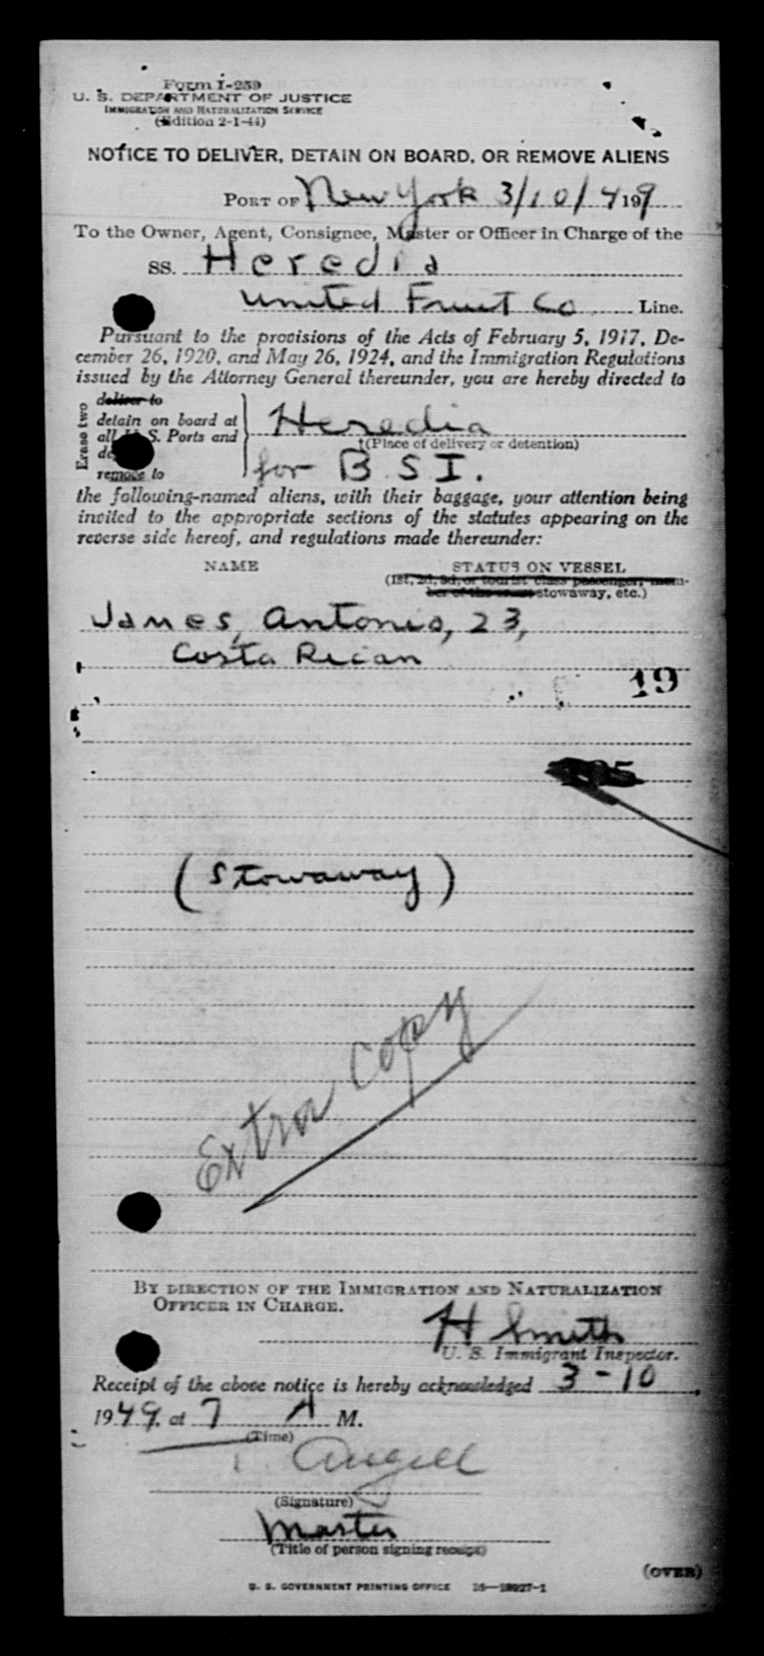 Form I-259
U. S. DEPARTMENT OF JUSTICE
IMMIGRATION AND NATURALIZATION SERVICE
(Edition 2-1-44)
NOTICE TO DELIVER, DETAIN ON BOARD, OR REMOVE ALIENS
PORT OF New York 3/10/49 199
To the Owner, Agent, Consignee, Master or Officer in Charge of the
SS. Heredia
United Fruit Co Line.
Pursuant to the provisions of the Acts of February 5, 1917, De-
cember 26, 1920, and May 26, 1924, and the Immigration Regulations
issued by the Attorney General thereunder, you are hereby directed to
Erase two
deliver to
detain on board at
all U. S. Ports and
remove to
Heredia
†(Place of delivery or detention)
for B S I.
the following-named aliens, with their baggage, your attention being
invited to the appropriate sections of the statutes appearing on the
reverse side hereof, and regulations made thereunder:
NAME STATUS ON VESSEL
(1st, 2d, 3d, or tourist class passenger, mem-
ber of the crew stowaway, etc.)
James, Antonio, 23,
Costa Rican
19
(Stowaway)
Extra Copy
BY DIRECTION OF THE IMMIGRATION AND NATURALIZATION
OFFICER IN CHARGE.
H Smith
U. S. Immigrant Inspector.
Receipt of the above notice is hereby acknowledged 3-10,
1949. at 7 A M.
(Time)
(Signature)
Master
(Title of person signing receipt)
(OVER)
U. S. GOVERNMENT PRINTING OFFICE 16—18927-1